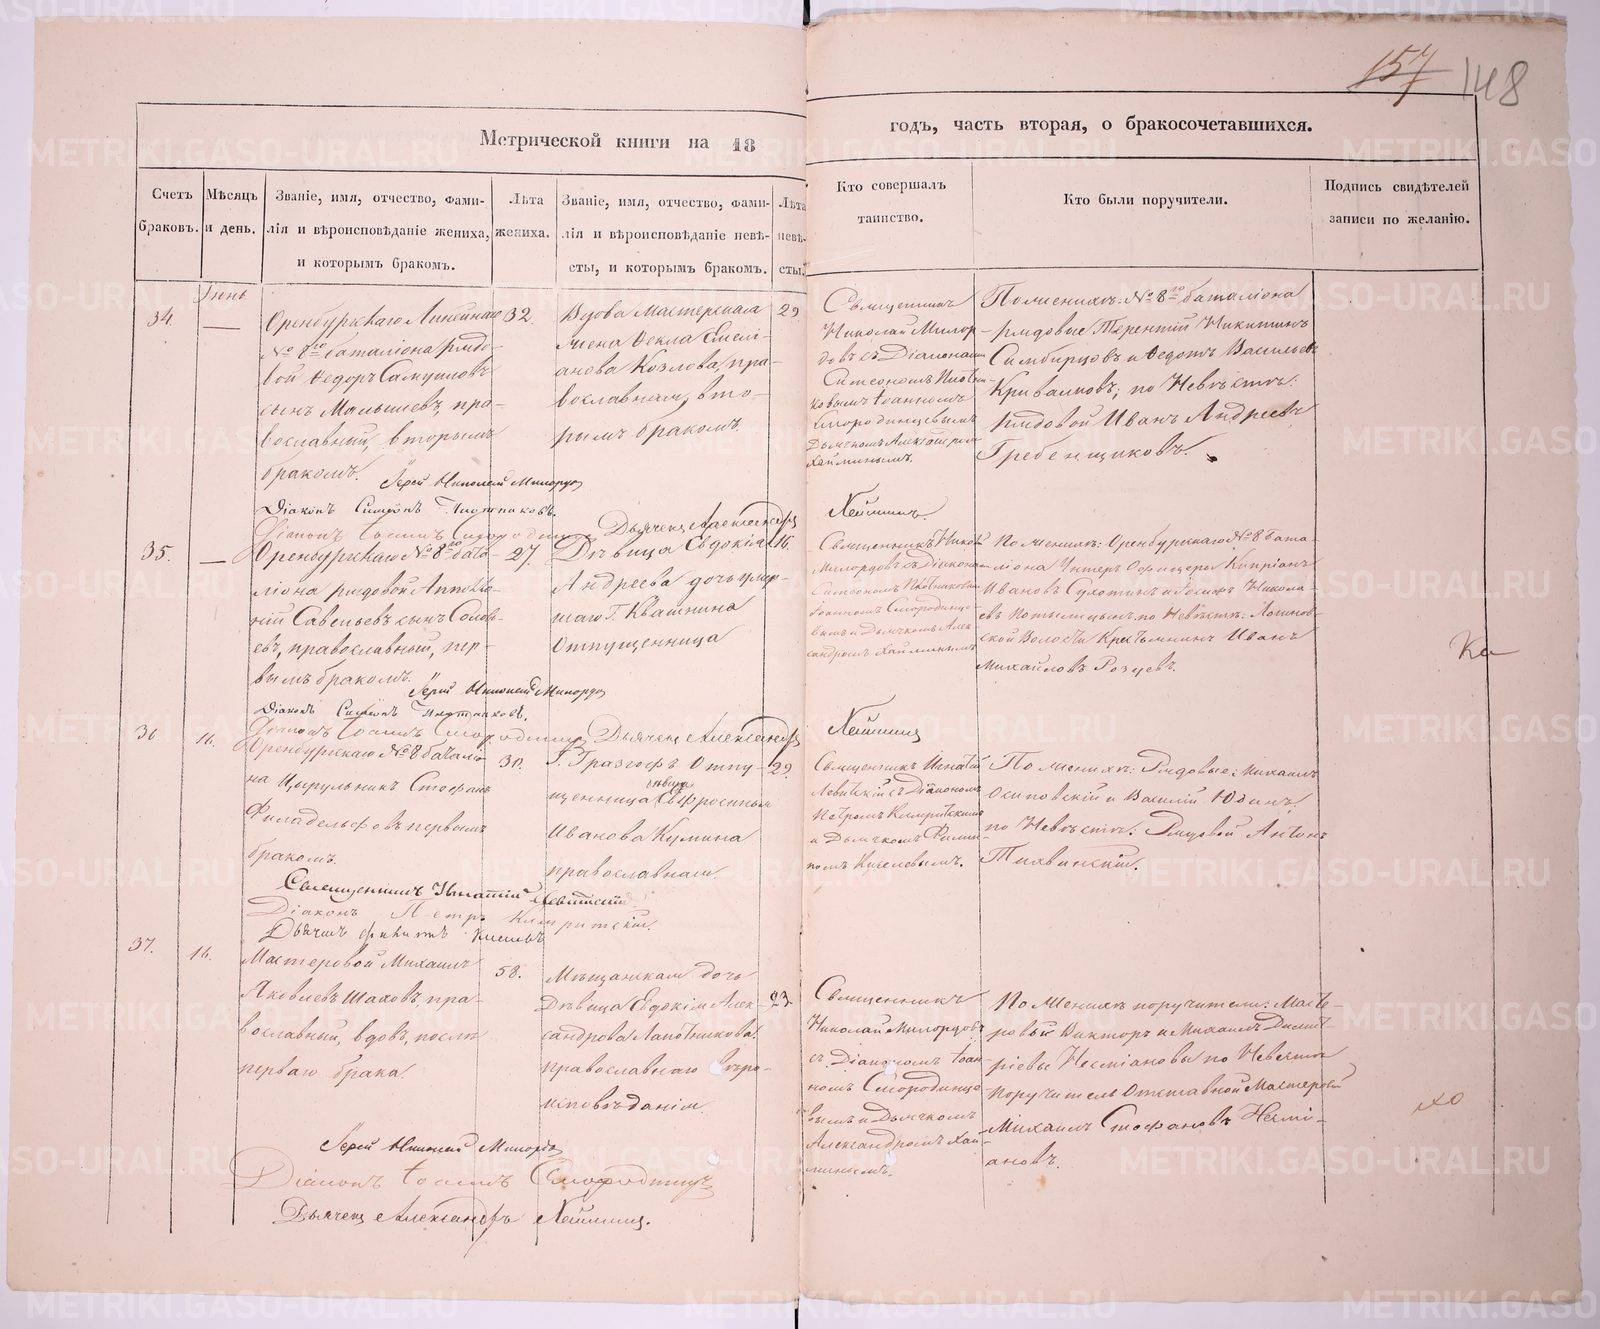 157 148
Метрической книги на 18
годъ, часть вторая, о бракосочетавшихся.
Счетъ браковъ.
Мѣсяцъ и день.
Званіе, имя, отчество, фами-
лія и вѣроисповѣданіе жениха,
и которымъ бракомъ.
Лѣта
жениха.
Званіе, имя, отчество, фами-
лія и вѣроисповѣданіе невѣ-
сты, и которымъ бракомъ.
Лѣта
невѣ-
сты.
Кто совершалъ
таинство.
Кто были поручители.
Подпись свидѣтелей
записи по желанію.
Іюнь
34.
Оренбургскаго Линейнаго
№ 8го баталіона рядо-
вой Ѳедоръ Самуиловъ
сынъ Малышевъ, пра-
вославный, вторымъ
бракомъ.
32.
Вдова Мастерская
жена Ѳекла Емелі-
анова Козлова, пра-
вославная, вто-
рымъ бракомъ.
29
Священникъ
Николай Милор-
довъ съ Діаконами
Симеономъ Плотни-
ковымъ Іоанномъ
Смородинцевымъ
Дьячкомъ Александром
Хайминымъ.
По женихѣ: № 8го баталіона
рядовые Терентій Никитинъ
Симбирцовъ и Ѳедотъ Васильевъ
Криваловъ; по Невѣстѣ:
рядовой Иванъ Андреевъ
Гребенщиковъ.
Іерей Николай Милордо
Діаконъ Симеонъ Плотниковъ.
Діаконъ Іоаннъ Смородинцо
Дьячекъ Александръ
Хайминъ.
35.
Оренбургскаго № 8го бата-
ліона рядовой
Савельевъ сынъ Солов-
евъ, православный, пер-
вымъ бракомъ.
27.
Дѣвица Евдокія
Андреева дочь умер-
шаго Г. Квашнина
Отпущенница
16.
Священникъ Никол
Милордовъ съ діаконам
Симеономъ Плотниковым
Іоанномъ Смородинцо-
вымъ и Дьячкомъ Алек-
сандромъ Хайминымъ
По женихѣ: Оренбургскаго № 8 бата-
ліона Унтеръ Офицеры Кипріанъ
Ивановъ Сухотинъ и Іосифъ Никола-
евъ по Невѣстѣ:
ской Волости Крестьянинъ Иванъ
Михайловъ
Іерей Николай Милордо
Діаконъ Симеонъ Плотниковъ.
Діаконъ Іоаннъ Смородинцо
Дьячекъ Александръ
Хайминъ
36
16.
Оренбургскаго № 8 баталіо-
на Цырульникъ Стефанъ
Филадельфовъ первымъ
бракомъ.
30.
Г. Гразгофъ Отпу-
щенница дѣвица Евфросинья
Иванова Кумина
православная
29.
Священникъ Игнатій
Левитскій съ Діакономъ
Петромъ Кипритскимъ
и Дьячкомъ Филип-
помъ Киселевымъ.
По женихѣ: Рядовые: Михаилъ
Осиповскій и Василій Юдинъ
по Невѣстѣ: Рядовой Антонъ
Тихвинскій.
Священникъ Игнатій Левитскій
Діаконъ Петръ Кипритскій.
Дьячекъ Филиппъ Киселевъ
37.
16.
Мастеровой Михаилъ
Яковлевъ Шаховъ, пра-
вославный, вдовъ, послѣ
перваго брака.
58.
Мѣщанская дочь
Дѣвица Евдокія Алек-
сандрова Лапотникова
православнаго вѣро-
исповѣданія.
23.
Священникъ
Николай Милордовъ
съ Діакономъ Іоан-
номъ Смородинцо-
вымъ и Дьячкомъ
Александромъ Хай-
минымъ.
По женихѣ поручители: Масте-
ровые Викторъ и Михаилъ Димит-
ріевы Несміановы по Невѣстѣ
поручитель Отставной Мастеровой
Михаилъ Стефановъ Несмі-
ановъ.
Іерей Николай Милордо
Діаконъ Іоаннъ Смородинцо
Дьячекъ Александръ Хайминъ.
METRIKI.GASO-URAL.RU